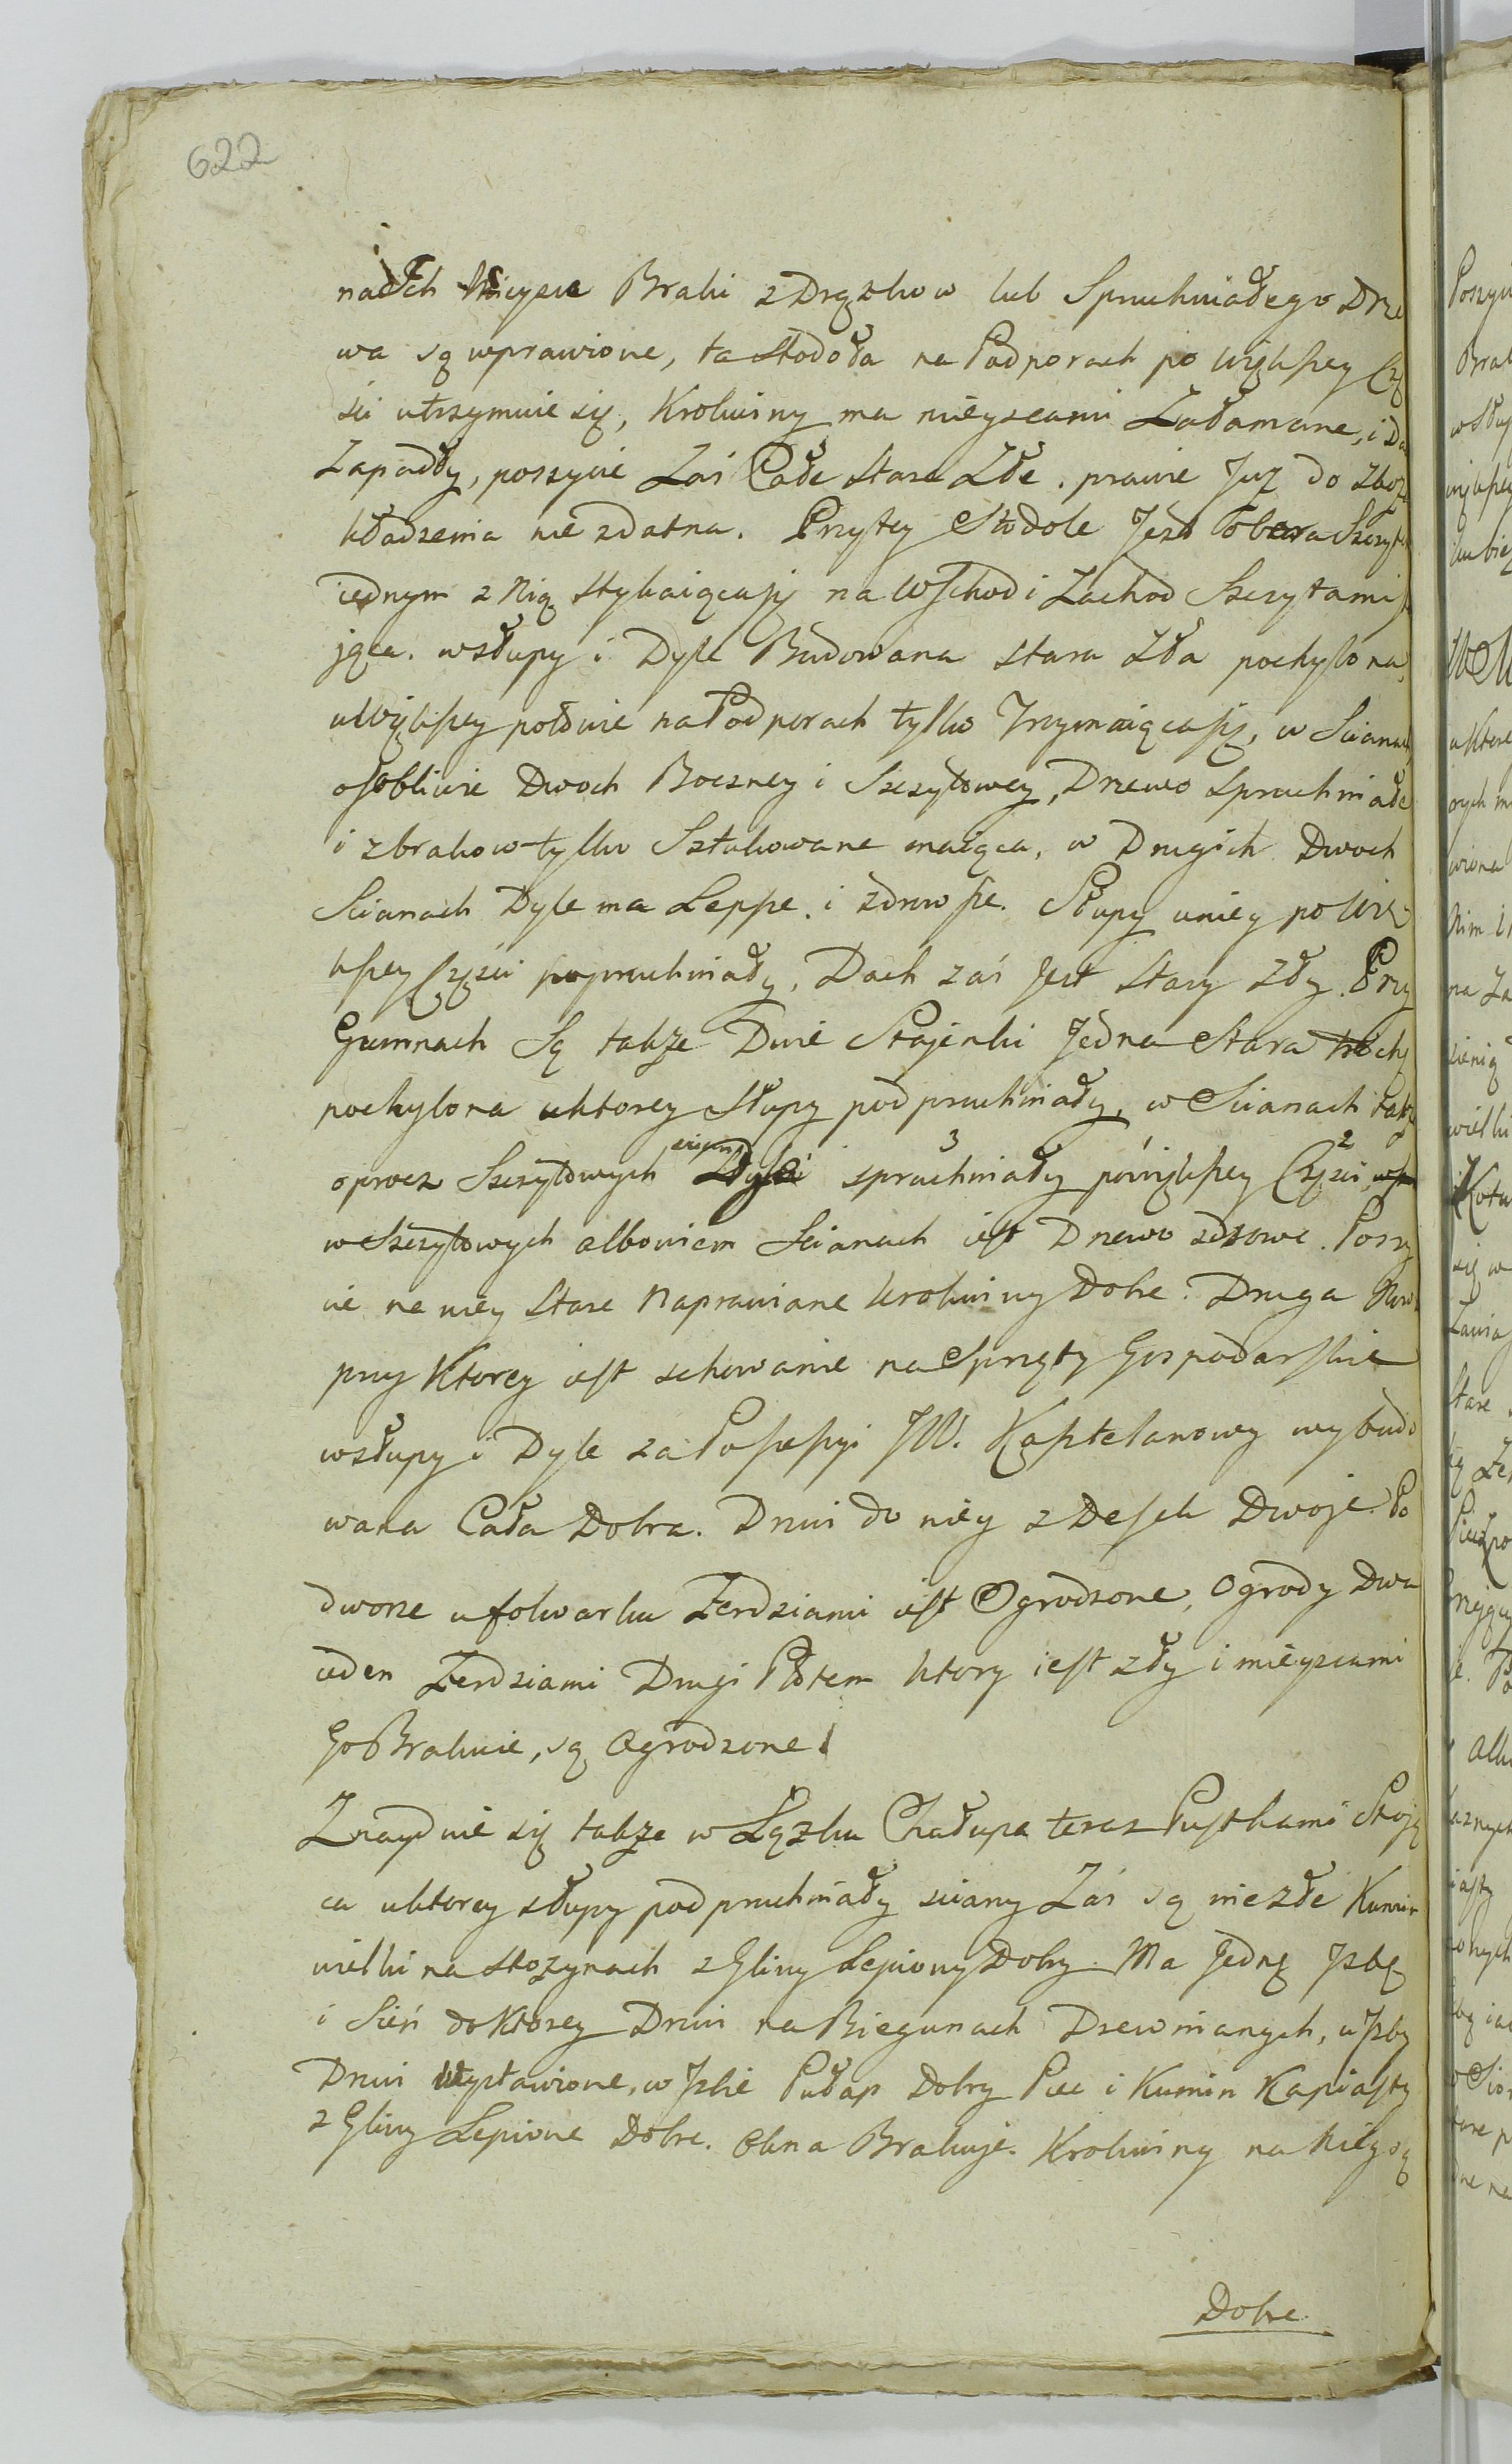 622
na Ich Mieysce Braki z Drązkow lub Spruchniałego Drze
wa są wprawione, ta Stodoła na Podporach po więkſzey Czę
ści utrzymuie się, Krokwiny ma mieyscami Załamane, i Da
Zapadły, poszycie Zaś Całe Stare Złe. prawie Juz do zboża
kładzenia nie zdatna. Przytey Stodole Jest Obora Szczyte
iednym z Nią stykaiącaſię na Wſchod i Zachod Szczytami
jąca. wsłupy i Dyle Budowana stara Zła pochylona,
uWiękſzey połowie naPodporach tylko Trzymaiącaſię, w Scianach
oſobliwie Dwoch Boczney i Szczytowey, Drzewo Spruchniałe
i zbrakow tylko Sztukowane maiąca, w Drugich Dwoch
Scianach Dyle ma Lepſze. i zdrowſze. Słupy uniey po Wię
kſzey Częsci popruchniały, Dach zaś Jest Stary Zły. Przy
Gumnach Są takze Dwie Stajenki Jedna Stara trochę
pochylona uktorey Słupy podpruchniały, w Scianach także
oprocz Szczytowych Dyle spruchniały 3 powiękſzey Częsci 2
w Szczytowych albowiem Scianach ieſt Drzewo zdrowe. Poszy
cie na niey Stare Naprawiane krokwiny Dobre. Druga Nowa
przy Ktorey ieſt schowanie na Sprzęty Goſpodarſkie
wsłupy i Dyle za Poſeſsyi JW. Kaſztelanowy wybudo
wana Cała Dobra. Drzwi do niey z Deſek Dwoje. Po
dworze uFolwarku Zerdziami ieſt Ogrodzone, Ogrody Dwa
ieden Zerdziami Drugi Płotem ktory ieſt zły i mieyscami
Go Brakuie, są Ogrodzone.
Znayduie się takze w Łęzku Chałupa teraz Puſtkami Stoją
ca uktorey słupy podpruchniały sciany Zaś są niezłe Kumin
wielki na Stozynach z Gliny Lepiony Dobry. Ma Jednę Jzbę
i Sień do Ktorey Drzwi na Biegunach Drewnianych, u Jzby
Drzwi Wystawione, w Jzbie Pułap Dobry Piec i Kumin Kapiaſty
z Gliny Lepione Dobre. Okna Brakuje. Krokwiny na Niey są
Dobre.